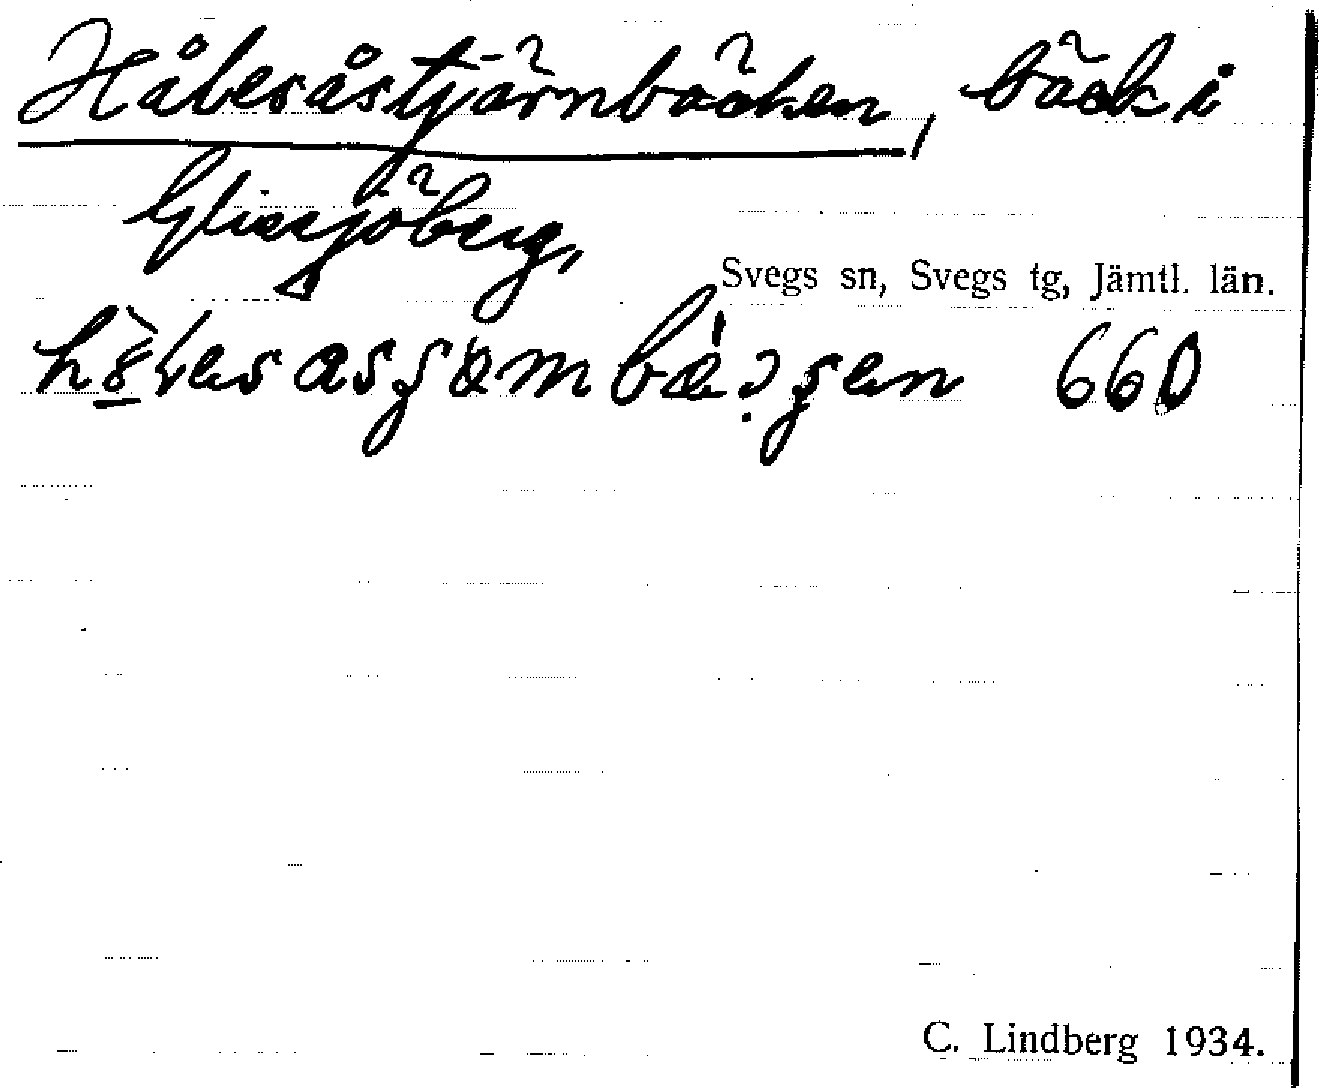 Håbesåstjärnbäcken, bäck i
Glissjöberg,
Svegs sn, Svegs tg, Jämtl. län.
660
C. Lindberg 1934.